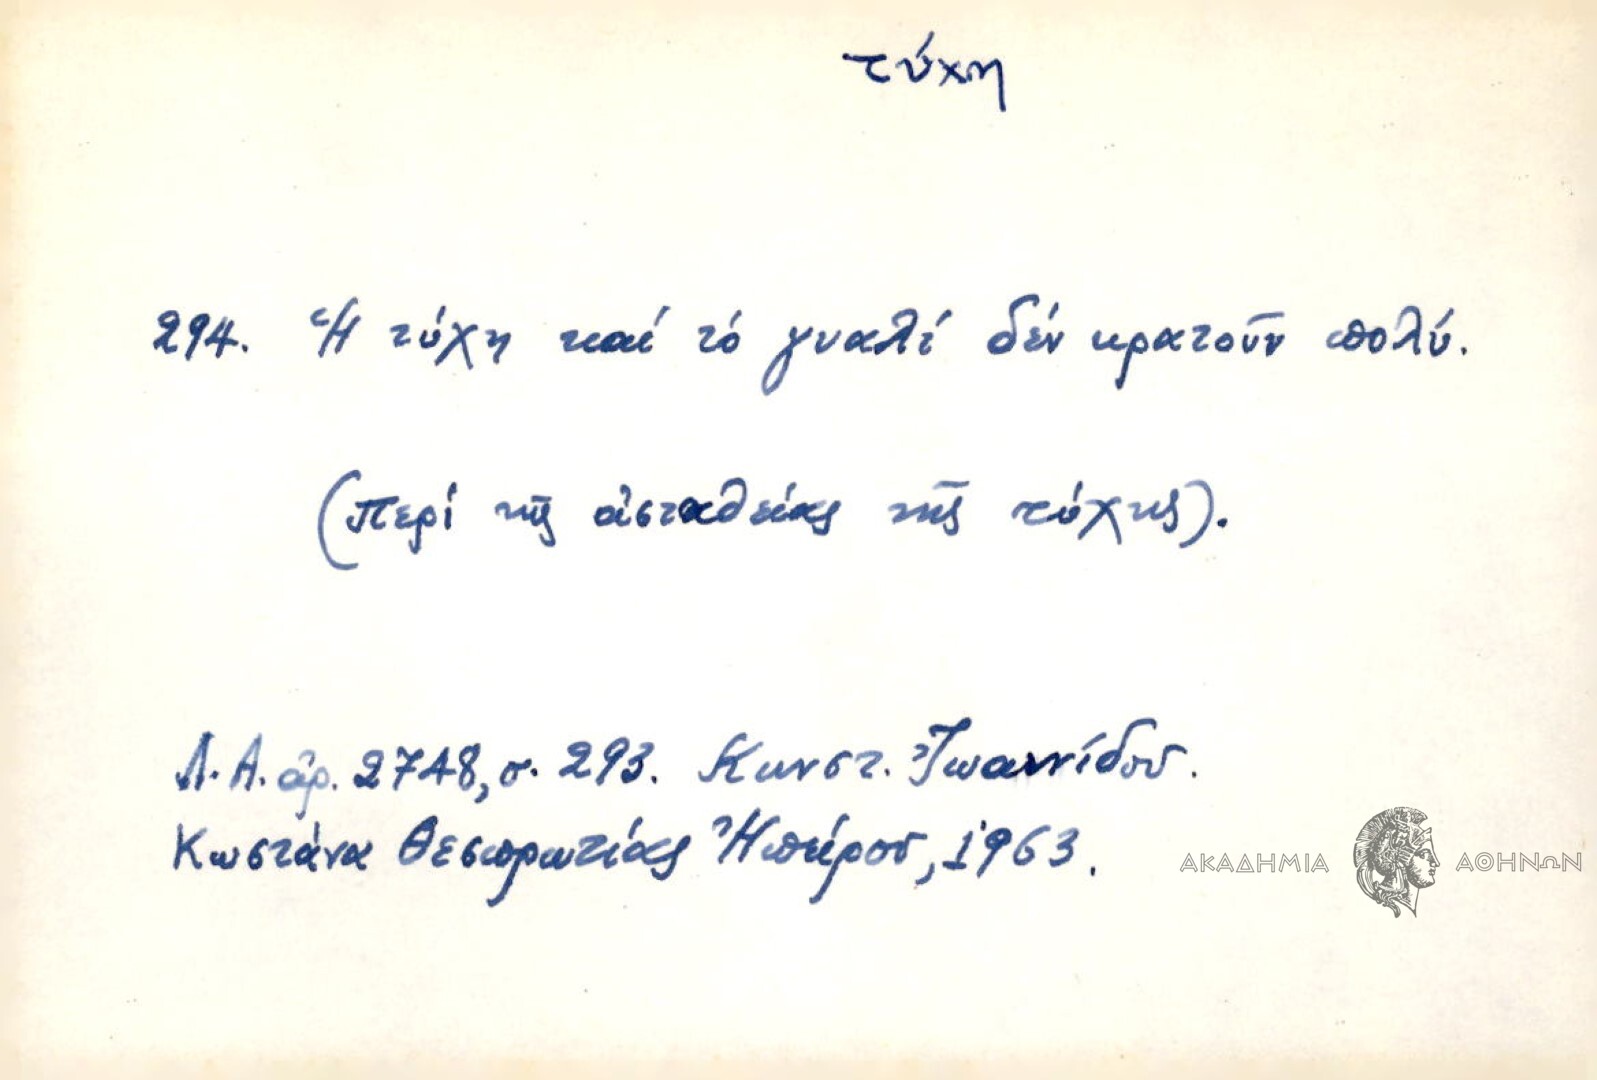 τύχη
294. Ἡ τύχη καί τό γυαλί δέν κρατοῦν πολύ.
(Περί τῆς ἀσταθείας τῆς τύχης).
Λ.Α. ἀρ. 2748, σ. 293. Κωνστ. Ἰωαννίδου.
Κωστάνα Θεσπρωτίας Ἠπείρου, 1963.
ΑΚΑΔΗΜΙΑ ΑΘΗΝΩΝ